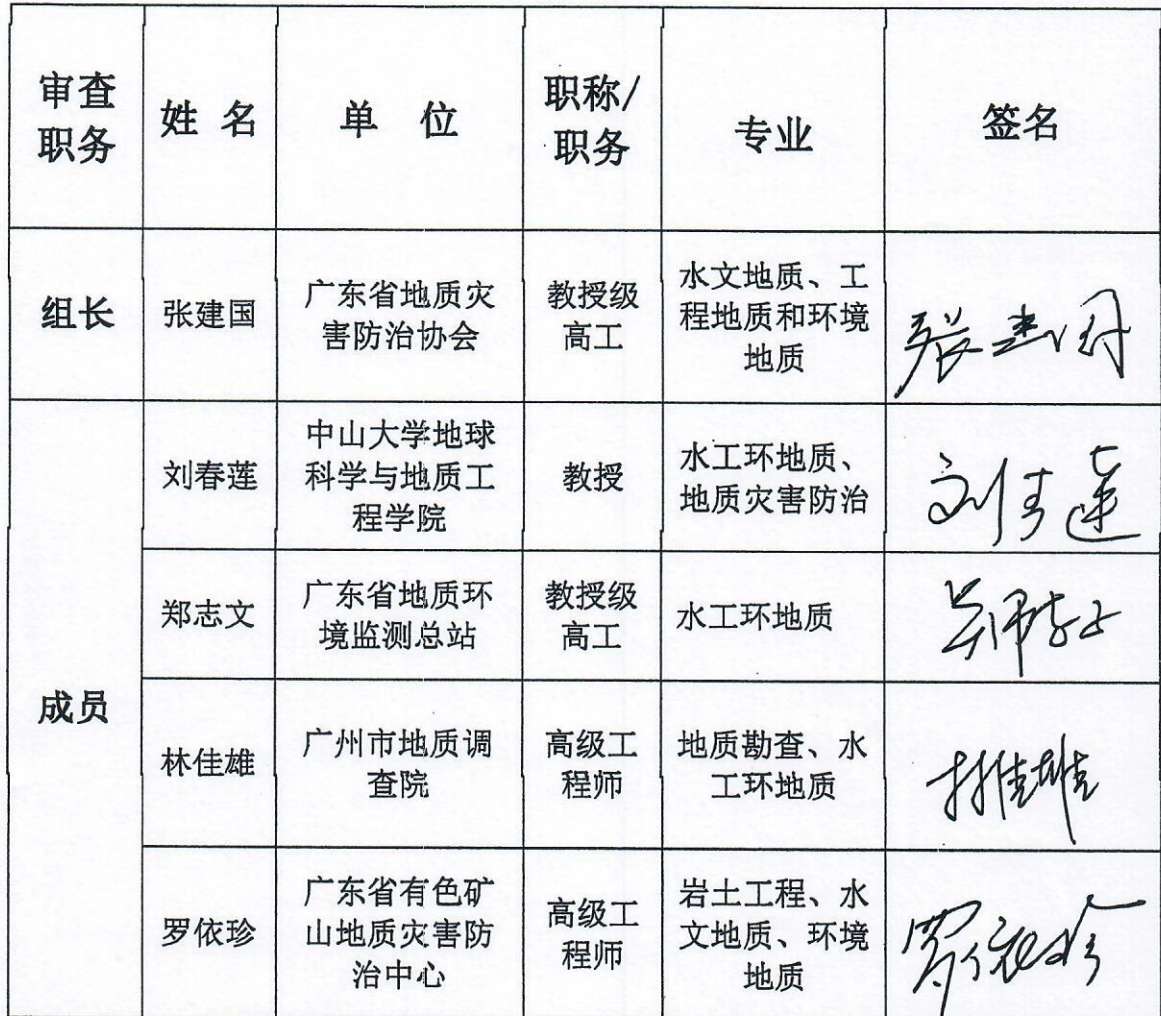 审查
职务
姓 名
单 位
职称/
职务
专业
签名
组长
张建国
广东省地质灾
害防治协会
教授级
高工
水文地质、工
程地质和环境
地质
张建国
成员
刘春莲
中山大学地球
科学与地质工
程学院
教授
水工环地质、
地质灾害防治
刘春莲
郑志文
广东省地质环
境监测总站
教授级
高工
水工环地质
林佳雄
广州市地质调
查院
高级工
程师
地质勘查、水
工环地质
林佳雄
罗依珍
广东省有色矿
山地质灾害防
治中心
高级工
程师
岩土工程、水
文地质、环境
地质
罗依珍